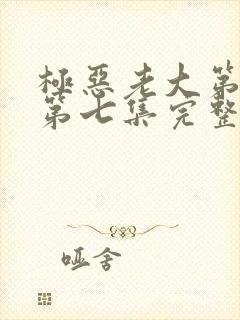 極惡老大第
第七集完整
哑舍